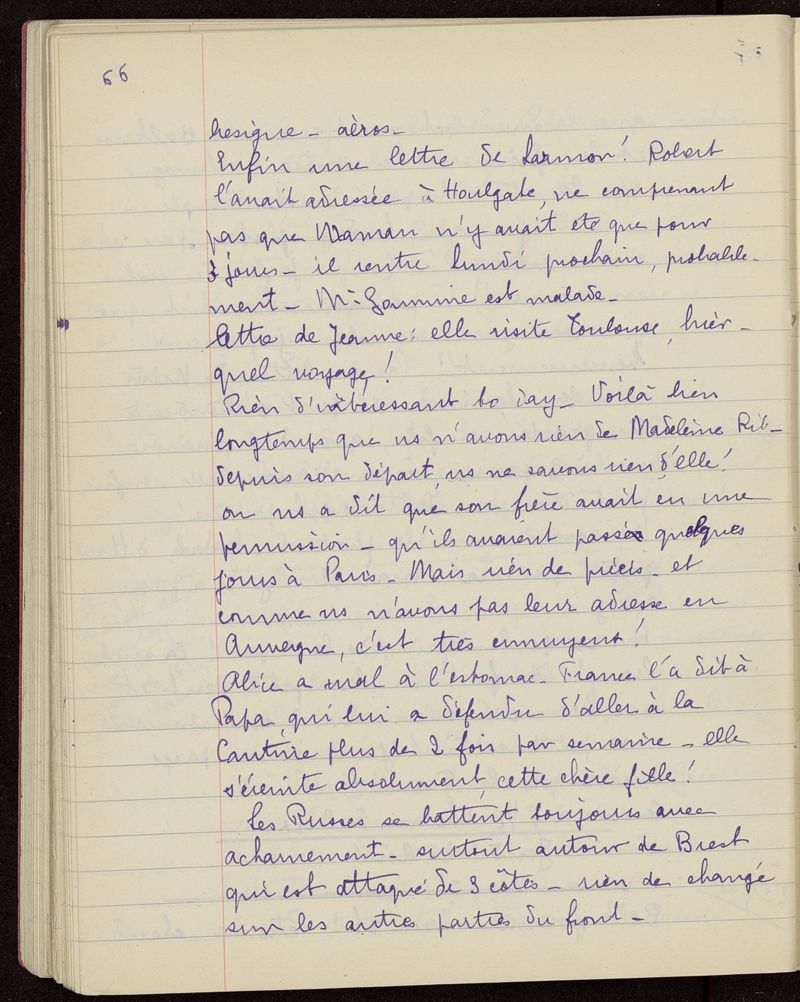 66
hesigne - aéros -
Enfin une lettre de Larmor! Robert
l'avait adressée à Houlgate, ne comprenant
pas que Maman n'y avait été que pour
3 jours - il rentre lundi prochain, probable-
ment - Mr est malade -
lettre de Jeanne: elle visite Toulouse, hier -
quel voyage!
Rien d'intéressant to day - Voilà bien
longtemps que ns n'avons rien de Madeleine Rib -
depuis son départ, ns ne savons rien d'elle!
on ns a dit que son frère avait eu une
permission - qu'ils avaient passés quelques
jours à Paris - Mais rien de précis - et
comme ns n'avons pas leur adresse en
Auvergne, c'est très ennuyeux!
Alice a mal à l'estomac - France l'a dit à
Papa, qui lui a défendu d'aller à la
Cantine plus de 2 fois par semaine - elle
s'éreinte absolument, cette chère fille!
Les Russes se battent toujours avec
acharnement - surtout autour de Brest
qui est attaqué de 3 côtés - rien de changé
sur les autres parties du front -